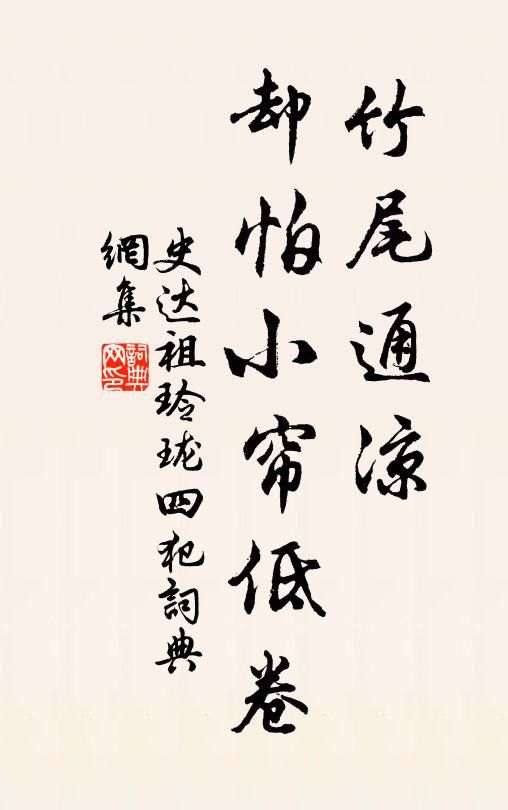 竹尾通凉
却怕小帘低卷
史达祖玲珑四犯詞典
網集
詞典
网印